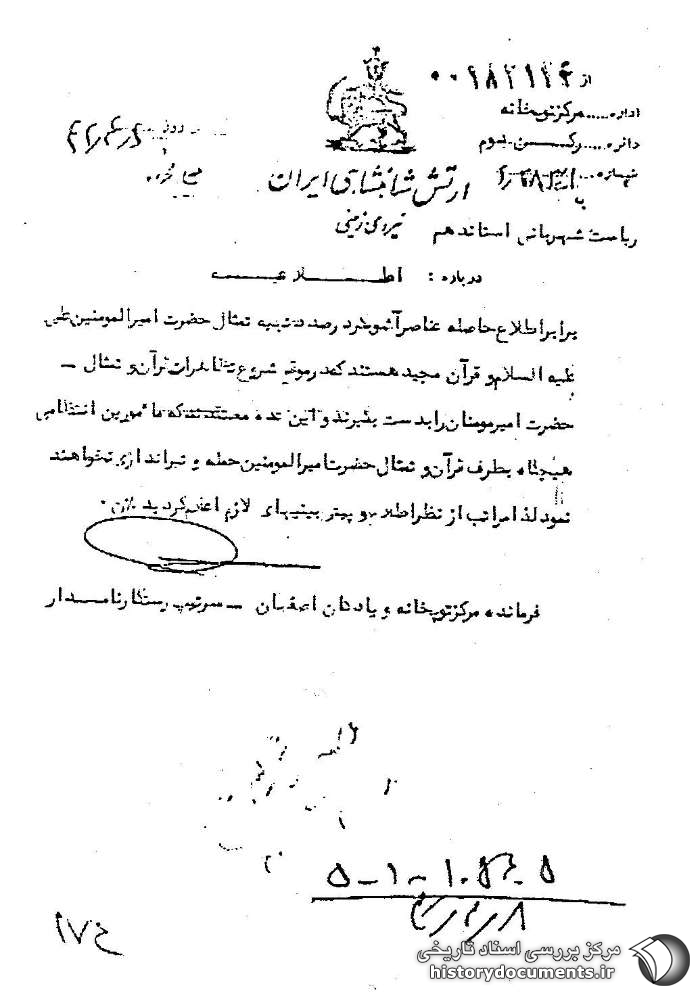 از
اداره.....مرکز توپخانه
دائره.....رکن دوم
شماره
ارتش شاهنشاهی ایران
نیروی زمینی
ریاست شهربانی استان دهم
درباره : اطلاعیه
برابر اطلاع حاصله عناصر آشوبگر درصدد تهیه تمثال حضرت امیرالمومنین علی
علیه السلام و قرآن مجید هستند که در موقع شروع تظاهرات قرآن و تمثال –
حضرت امیرمومنان را بدست بگیرند و این عده معتقدند که مأمورین انتظامی
هیچگاه بطرف قرآن و تمثال حضرت امیرالمومنین حمله و تیراندازی نخواهند
نمود لذا مراتب از نظر اطلاع و پیش بینیهای لازم اعلام گردید
فرمانده مرکز توپخانه و پادگان اصفهان – سرتیپ رستگار نامدار
مرکز بررسی اسناد تاریخی
historydocuments.ir